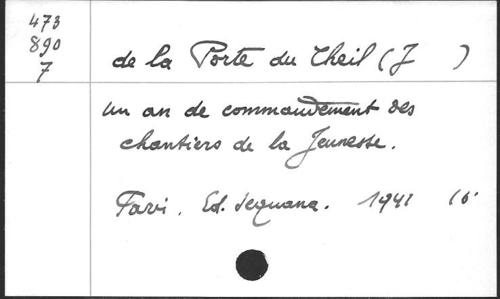 473
890
7
de la Porte du Theil (J )
Un an de commandement des
chantiers de la Jeunesse.
Paris. Ed. Sequana. 1941